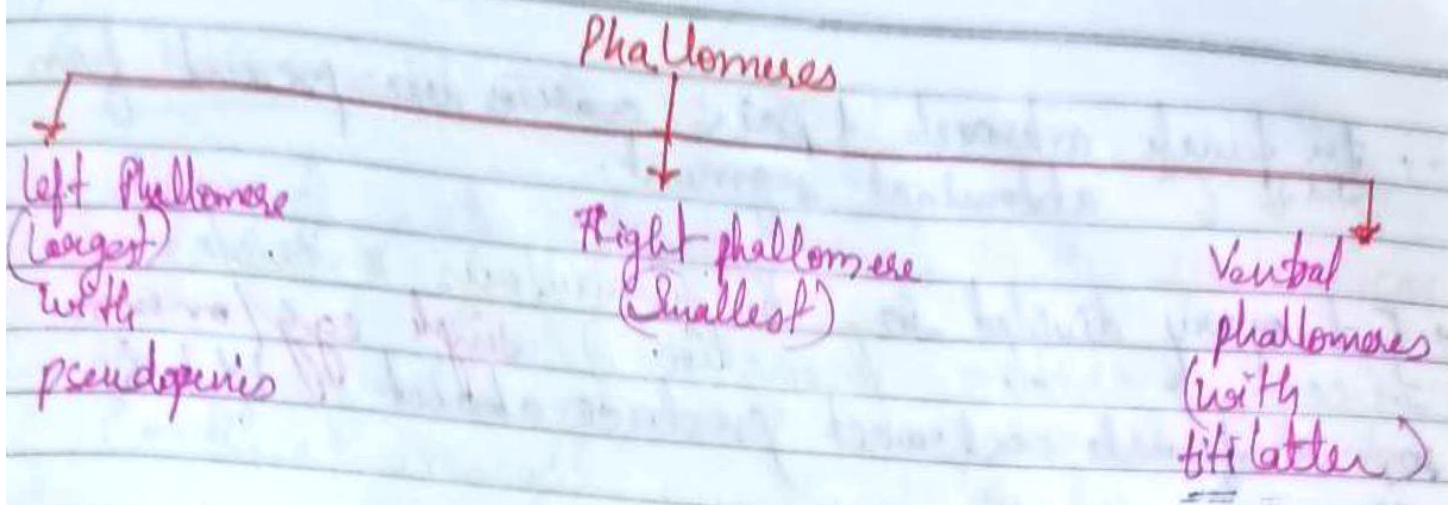 Phallomeres
left Phallomere
(largest)
with
pseudopenis
Right phallomere
(Smallest)
Ventral
phallomeres
(with
titilatter)